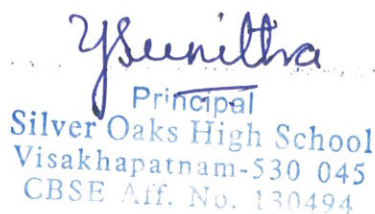 YSunitha
Principal
Silver Oaks High School
Visakhapatnam-530 045
CBSE Aff. No. 130494